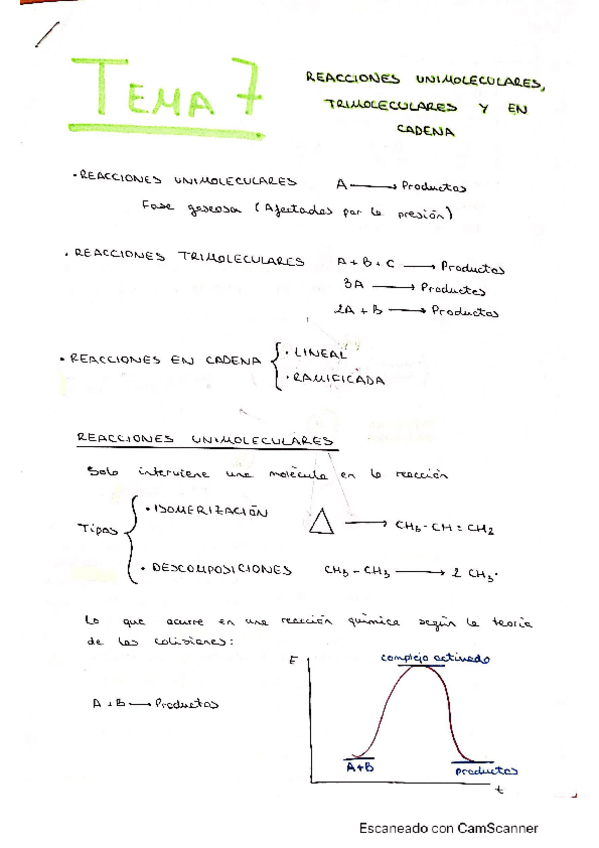 TEMA 7
REACCIONES UNIMOLECULARES,
TRIMOLECULARES Y EN
CADENA
· REACCIONES UNIMOLECULARES A → Productos
Fase gaseosa (Afectadas por la presión)
· REACCIONES TRIMOLECULARES A + B + C → Productos
3A → Productos
2A + B → Productos
· REACCIONES EN CADENA { · LINEAL
· RAMIFICADA
REACCIONES UNIMOLECULARES
Solo interviene una molécula en la reacción
Tipos { · ISOMERIZACIÓN △ → CH3-CH=CH2
· DESCOMPOSICIONES CH3-CH3 → 2 CH3·
Lo que ocurre en una reacción química según la teoría
de las colisiones:
A + B → Productos
E
complejo activado
A+B
productos
t
Escaneado con CamScanner